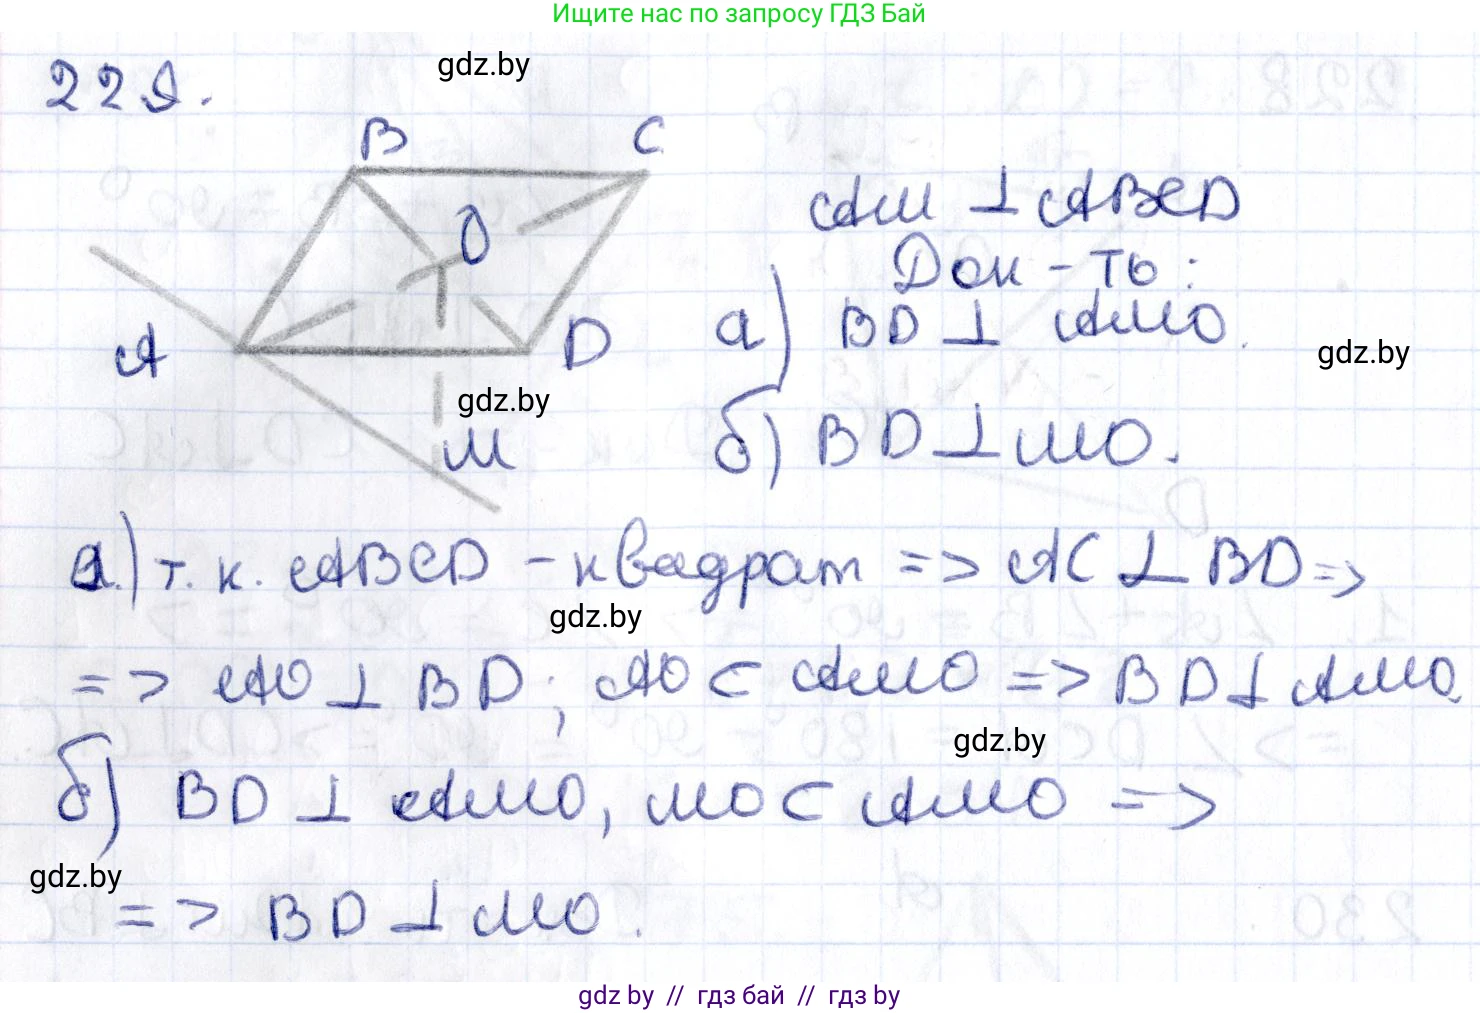 Ищите нас по запросу ГДЗ Бай
gdz.by
229.
B
C
O
A
D
M
AM ⊥ ABCD
Док-ть:
а) BD ⊥ AMO.
gdz.by
gdz.by
б) BD ⊥ MO.
а) т. к. ABCD - квадрат => AC ⊥ BD =>
gdz.by
=> AO ⊥ BD; AO ⊂ AMO => BD ⊥ AMO.
gdz.by
б) BD ⊥ AMO, MO ⊂ AMO =>
gdz.by
=> BD ⊥ MO.
gdz by // гдз бай // гдз by